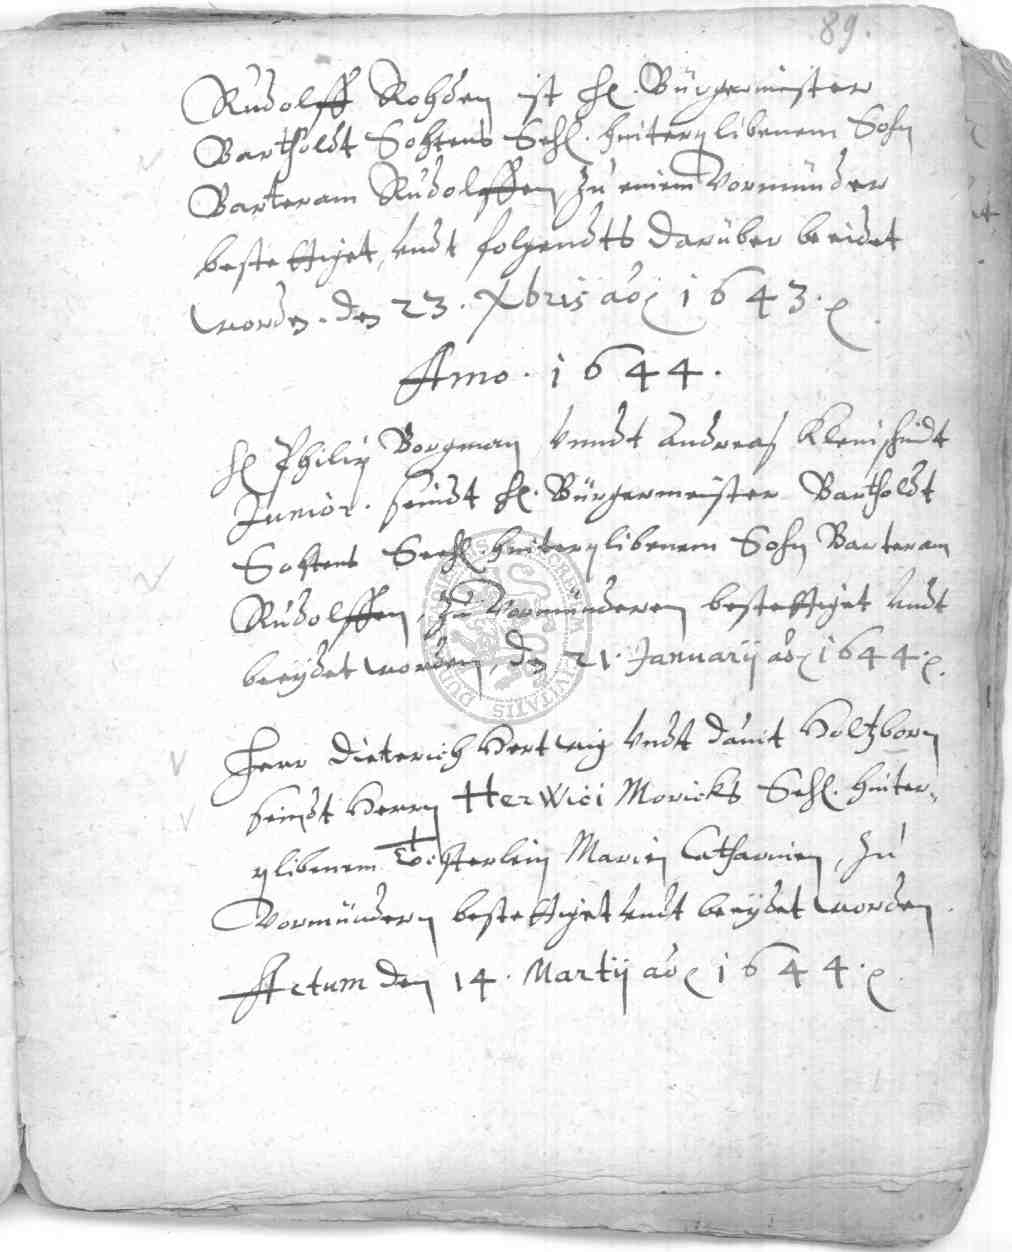 89.
Rudolff Rohden ist H. Bürgermeister
Bartholdt Sohtens Sehl. hinterplibenem Sohn
Barteram Rudolffen, zu einem Vormünder
bestettiget, undt folgendts darüber beeidet
worden. den 23. Xbris ao 1643.
Anno. 1644.
H Philip Borgman undt Andreas Kleinschmidt
Junior. seindt H. Bürgermeister Bartholdt
Sohtens Seehl. hinterplibenem Sohn Barteram
Rudolffen, zu Vormünderen bestettiget undt
beeydet worden, den 21. Januarij ao 1644.
Herr Dieterich Hertwig undt Davit Holtzborn
seindt Herrn Herwici Moricks Sehl. hinter-
plibenem Töchterlein Marien Catharinen, zu
Vormündern bestettiget undt beeydet worden.
Actum den 14. Martij ao 1644.